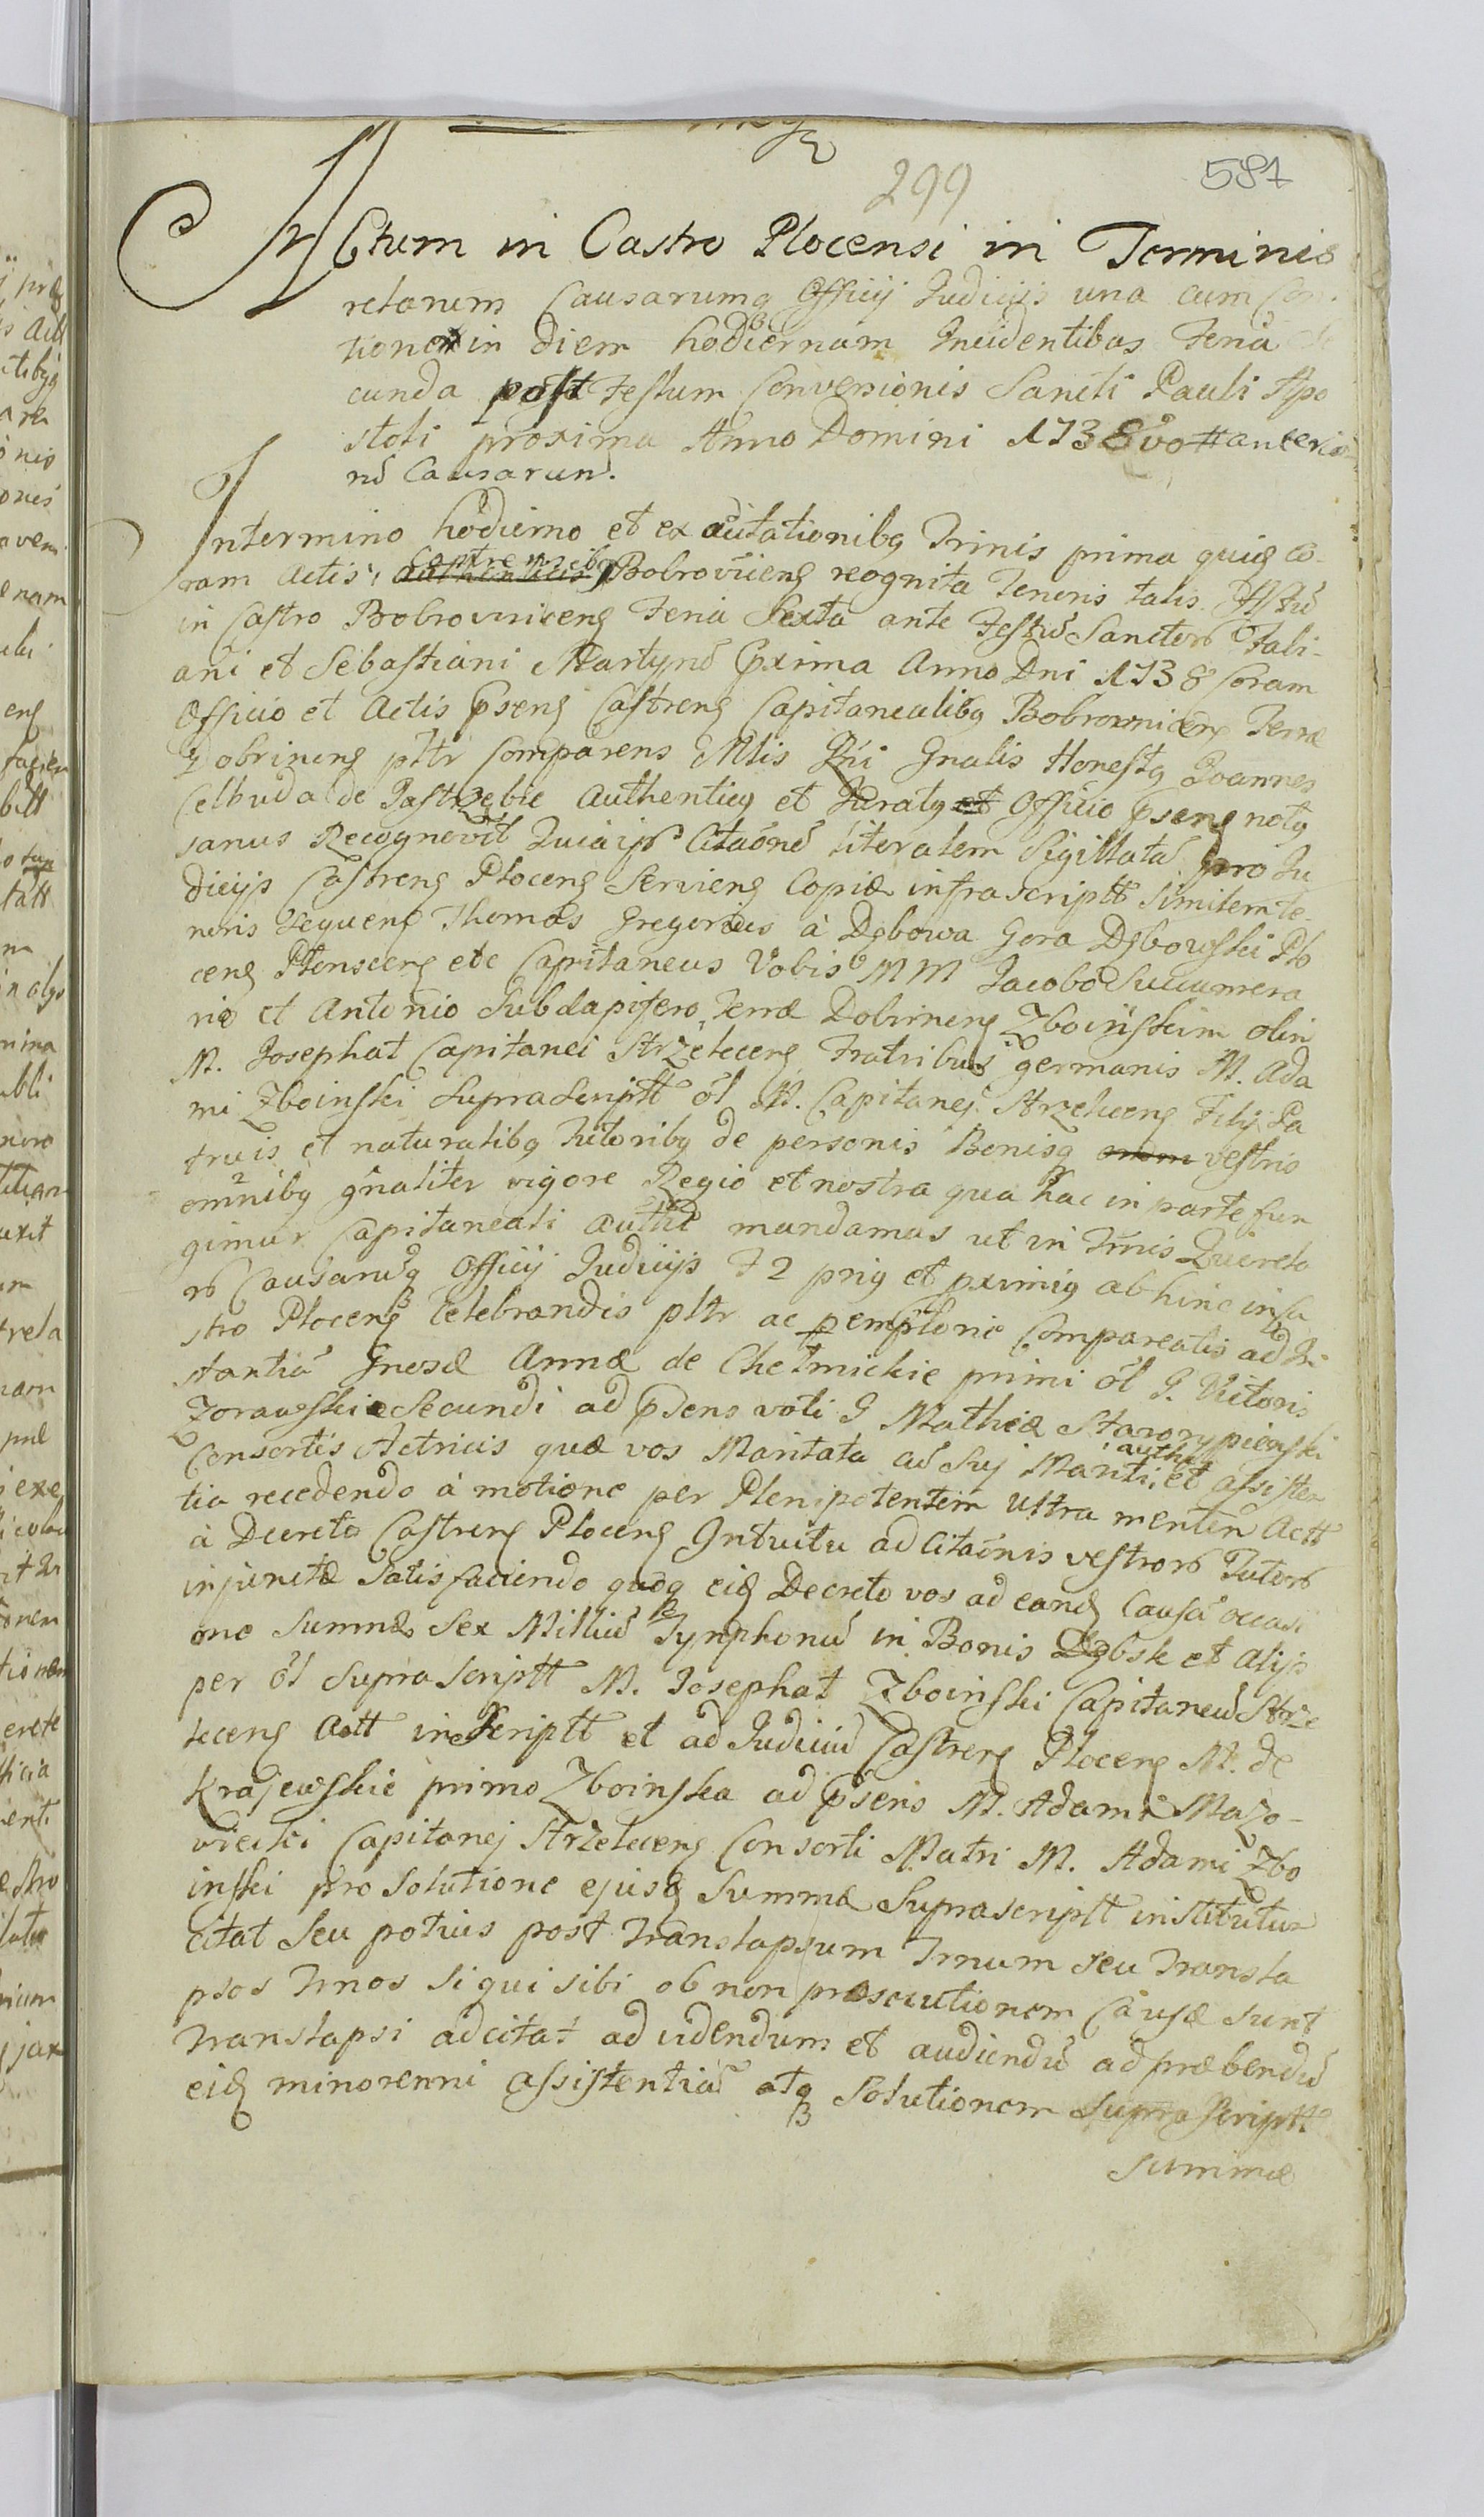 299
587
Actum in Castro Plocensi in Terminis
retorum Causarumq Officij Judicijs una cum Con
tione in diem hodiernam Incidentibus Feria Se
cunda post Festum Conversionis Sancti Pauli Apo
stoli proxima Anno Domini 1738vo
rũ Causarum.
In termino hodierno et ex adcitationibq Trinis prima quid Co
ram Actis Castrensibq Bobrovicens recognita Tenoris talis. Actũ
in Castro Bobrovnicens Feria Sexta ante Festũ Sanctorũ Fabi
ani et Sebastiani Martyrũ pxima Anno Dni 1738 Coram
Officio et Actis psens Castrens Capitanealibq Bobrovnicens Terræ
Dobrinens pltr Comparens Mtis Rni Gnalis Honestq Joannes
Celbuda de Jastrzębie Authenticq et Juratq Officio psens notq
sanus Recognovit Quia ips Citaõnẽ literalem Sigillatã pro Ju
dicijs Castrens Plocens Serviens Copiæ infrascriptt Similem te
noris sequens Thomas Gregorius à Dębowa Gora Dębowski Plo
cens Plonscens etc Capitaneus Vobis MM Jacobo Succamera
rio et Antonio Subdapifero Terræ Dobrinens Zboinskim olim
M. Josephat Capitanei Strzelecens Fratribus germanis M. Ada
mi Zboinski Suprascriptt ol M. Capitanej Strzelecens Filij Pa
truis et naturalibq Tutoribq de personis Bonisq vestris
omnibq gnaliter vigore Regio et nostra qua hac in parte fun
gimur Capitaneali authe mandamus ut in Tmis Querelo
rũ Causarũq Officij Judicijs F2 priq et pximiq ab hinc in Ca
stro Plocens Celebrandis pltr ac pemptorie Compareatis ad In
stantiã Gnosæ Annæ de Chełmickie primi ol G. Victoris
Zorawskie Secundi ad psens voti G Mathiæ Starorypienski
Consortis Actricis quæ vos Maritata ad Suj Mariti authe et assisten
tia recedendo à motione per Plenipotentem Ultra mentem Actt
à Decreto Castrens Plocens Intuitu adcitaõnis vestrorũ Tutorũ
injunctæ Satisfaciendo quoq eid Decreto vos ad eand Causã occasi
one Summæ Sex Milliũ Tynphonũ in Bonis Dębsk et Alijs
per ol Suprascriptt M. Josephat Zboinski Capitaneũ Strze
lecens Actt inscriptt et ad Judiciũ Castrens Plocens M. de
Krajewskie primo Zboinska ad psens M. Adami Mazo-
wiecki Capitanej Strzelecens Consorti Matri M. Adami Zbo
inski pro Solutione ejusd Summæ Suprascriptt institutum
Citat Seu potius post Translapsum Tmum seu Transla
psos Tmos si qui sibi ob non prosecutionem Causæ sunt
Translapsi adcitat ad videndum et audiendũ ad præbendũ
eid minorenni assistentiã atq Solutionem Suprascriptt
Summæ